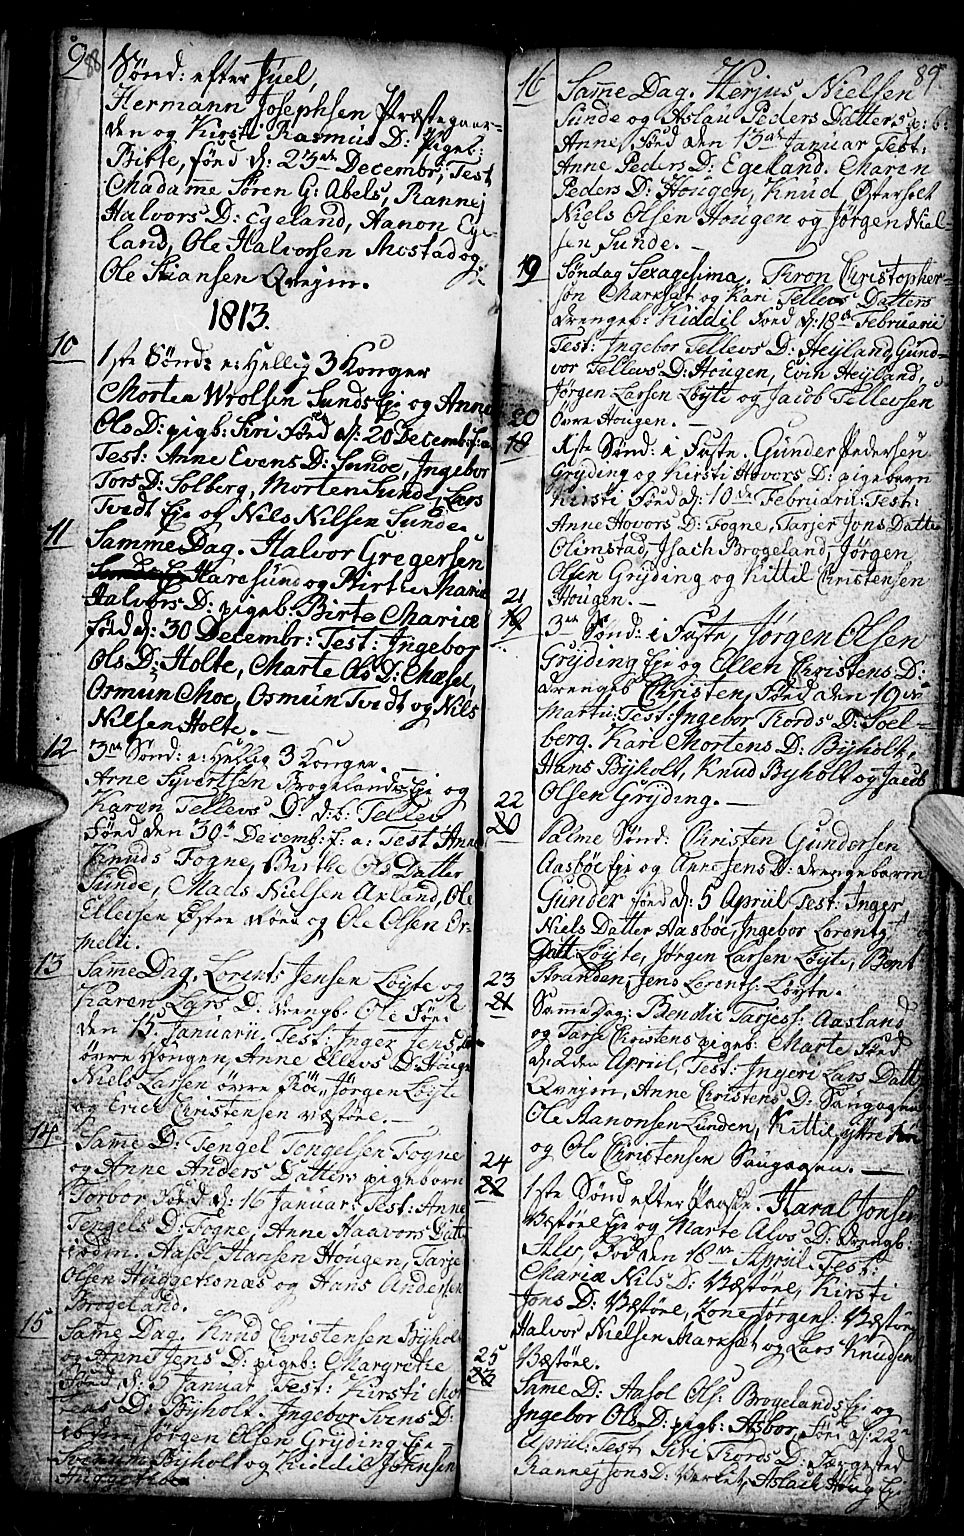 9 88
Sønd: efter Juel,
Hermann Josephsen Præstegaar-
den og Kirsti Rasmus D: Pigeb:
Birte, fød d: 23de Decembr; Test
Madame Søren G: Abels, Rannej
Halvors D: Egeland, Aanon Ege-
land, Ole Halvorsen Mostad og
Ole Kiansen Qveim.
1813.
10
1ste Sønd: e: Hellig 3 Konger
Morten Wrolsen Sunds Eje og Anne
Ols D: pigb: Siri Fød d: 20 Decemb: f: a:
Test: Anne Evens D: Sunde, Ingebor
Tors D: Solberg, Morten Sunde, Lars
Tvedt Eje og Nils Nilsen Sunde
11
Samme Dag. Halvor Gregersen
Haresund og Birte Maria
Halvors D: pigeb: Birte Maria
Fød d: 30 Decembr: Test: Ingebor
Ols D: Holte, Marte Ols D: Mæsel,
Osmun Moe, Osmun Tvedt og Nils
Nilsen Holte. —
12
3die Sønd: e: Hellig 3 Konger. —
Arne Syvertsen Brogelands Eje og
Karen Tellevs D: d: b: Tellev
Fød den 30te Decemb: f: a: Test Anne
Knuds Fogne, Birthe Ols Datter
Sunde, Mads Nielsen Axland, Ole
Ellevsen Østre og Ole Olsen Or-
melie.
13
Samme Dag. Lorents Jensen Løyte og
Karen Lars D: drengb: Ole Fød
den 15 Januarii. Test: Inger Jens D:
øvre Hougen, Anne Ellevs D: Houge
Niels Larsen øvre Røe, Jørgen Løyte
og Erich Christensen Væstøl. —
14
Samme D: Tengel Tengelsen Fogne
og Anne Anders Datters pigeborn
Torbor Fød d: 16 Januar: Test: Anne
Tengels D: Fogne, Anne Haavors Datt:
ibdm. Aasol Hansen Hougen, Tarje
Olsen Huggeksnæs og Hans Andersen
Brogeland.
15
Samme Dag. Knud Christensen Byholt
og Anne Jens D: pigeb: Margrethe
Fød d: 5 Januar. Test: Kirsti Mor
tens D: Byholt. Ingebor Svens D:
ibdm, Jørgen Olsen Gryding Eje
Byholt og Kiddil Johnsen
89
16
Samme Dag. Herjus Nielsen
Sunde og Aslau Peders Datters p: b:
Anne, Fød den 13de Januar Test:
Anne Peders D: Egeland. Maren
Peders D: Hougen, Knud Østerholt
Niels Olsen Hougen og Jørgen Niel-
sen Sunde. —
19
Søndag Sexagesima. Tron Christopher-
søn Markset og Kari Tellevs Datters
drengeb: Kiddil Fød d: 18de Februarii
Test: Ingebor Tellevs D: Heyland, Gund-
vor Tellevs D: Hougen, Evin Heyland,
Jørgen Larsen Løyte og Jacob Tellevsen
Øvre Hougen. —
20
18
1ste Sønd: i Faste. Gunder Pedersen
Gryding og Kirsti Hovors D: pigebarn
Kirsti Fød d: 10de Februarii: Test:
Anne Hovors D: Fogne, Tarjer Jons Datter
Olimstad, Isach Brogeland, Jørgen
Olsen Gryding og Kittil Christensen
Hougen. —
21
19
3die Sønd: i Fast, Jørgen Olsen
Gryding Eje og Ellen Christens D:
drengeb Christen, Fød den 19de
Martii: Test: Ingebor Tords D: Soel-
berg. Kari Mortens D: Byholt,
Hans Byholt, Knud Byholt og Jacob
Olsen Gryding. —
22
20
Palme Sønd: Christen Gundersen
Aasbøe Eje og Anne Jens D: drengebarn
Gunder fød d: 5 April Test: Inger
Niels Datter Aasbøe, Ingebor Lorentz
Datt: Løyte, Jørgen Larsen Løyte, Bent
Stranden, Jens Lorents: Løyte.
23
21
Samme Dag: Bendix Tarjess: Aasland
og Tarje Christens pigeb: Marte Fød
d: 2den April, Test: Ingeri Lars Datt:
Qveim, Anne Christens D: Saugagen
Ole Aanonsen Lunden, Kittil yttre
og Ole Christensen Saugagen. —
24
22
1ste Sønd efter Paaske. Haral Jonsen
Væstøl Eje og Marte Alvs D: drengb:
Alv, Fød den 18de April. Test:
Maria Nils D: Væstøl, Kirsti
Jons D: Væstøl, Lone Jørgens: Væstøl
Halvor Nielsen Markset og Lars Knudsen
Væstøl.
25
23
Samme D: Aasol Ols: Brogelands Eje og
Ingebor Ols D: pigb: Asbor, Fød d: 22de
April: Test: Siri Tords D: Fangested
Rannej Jons D: Verket, Aslach Houg Eje